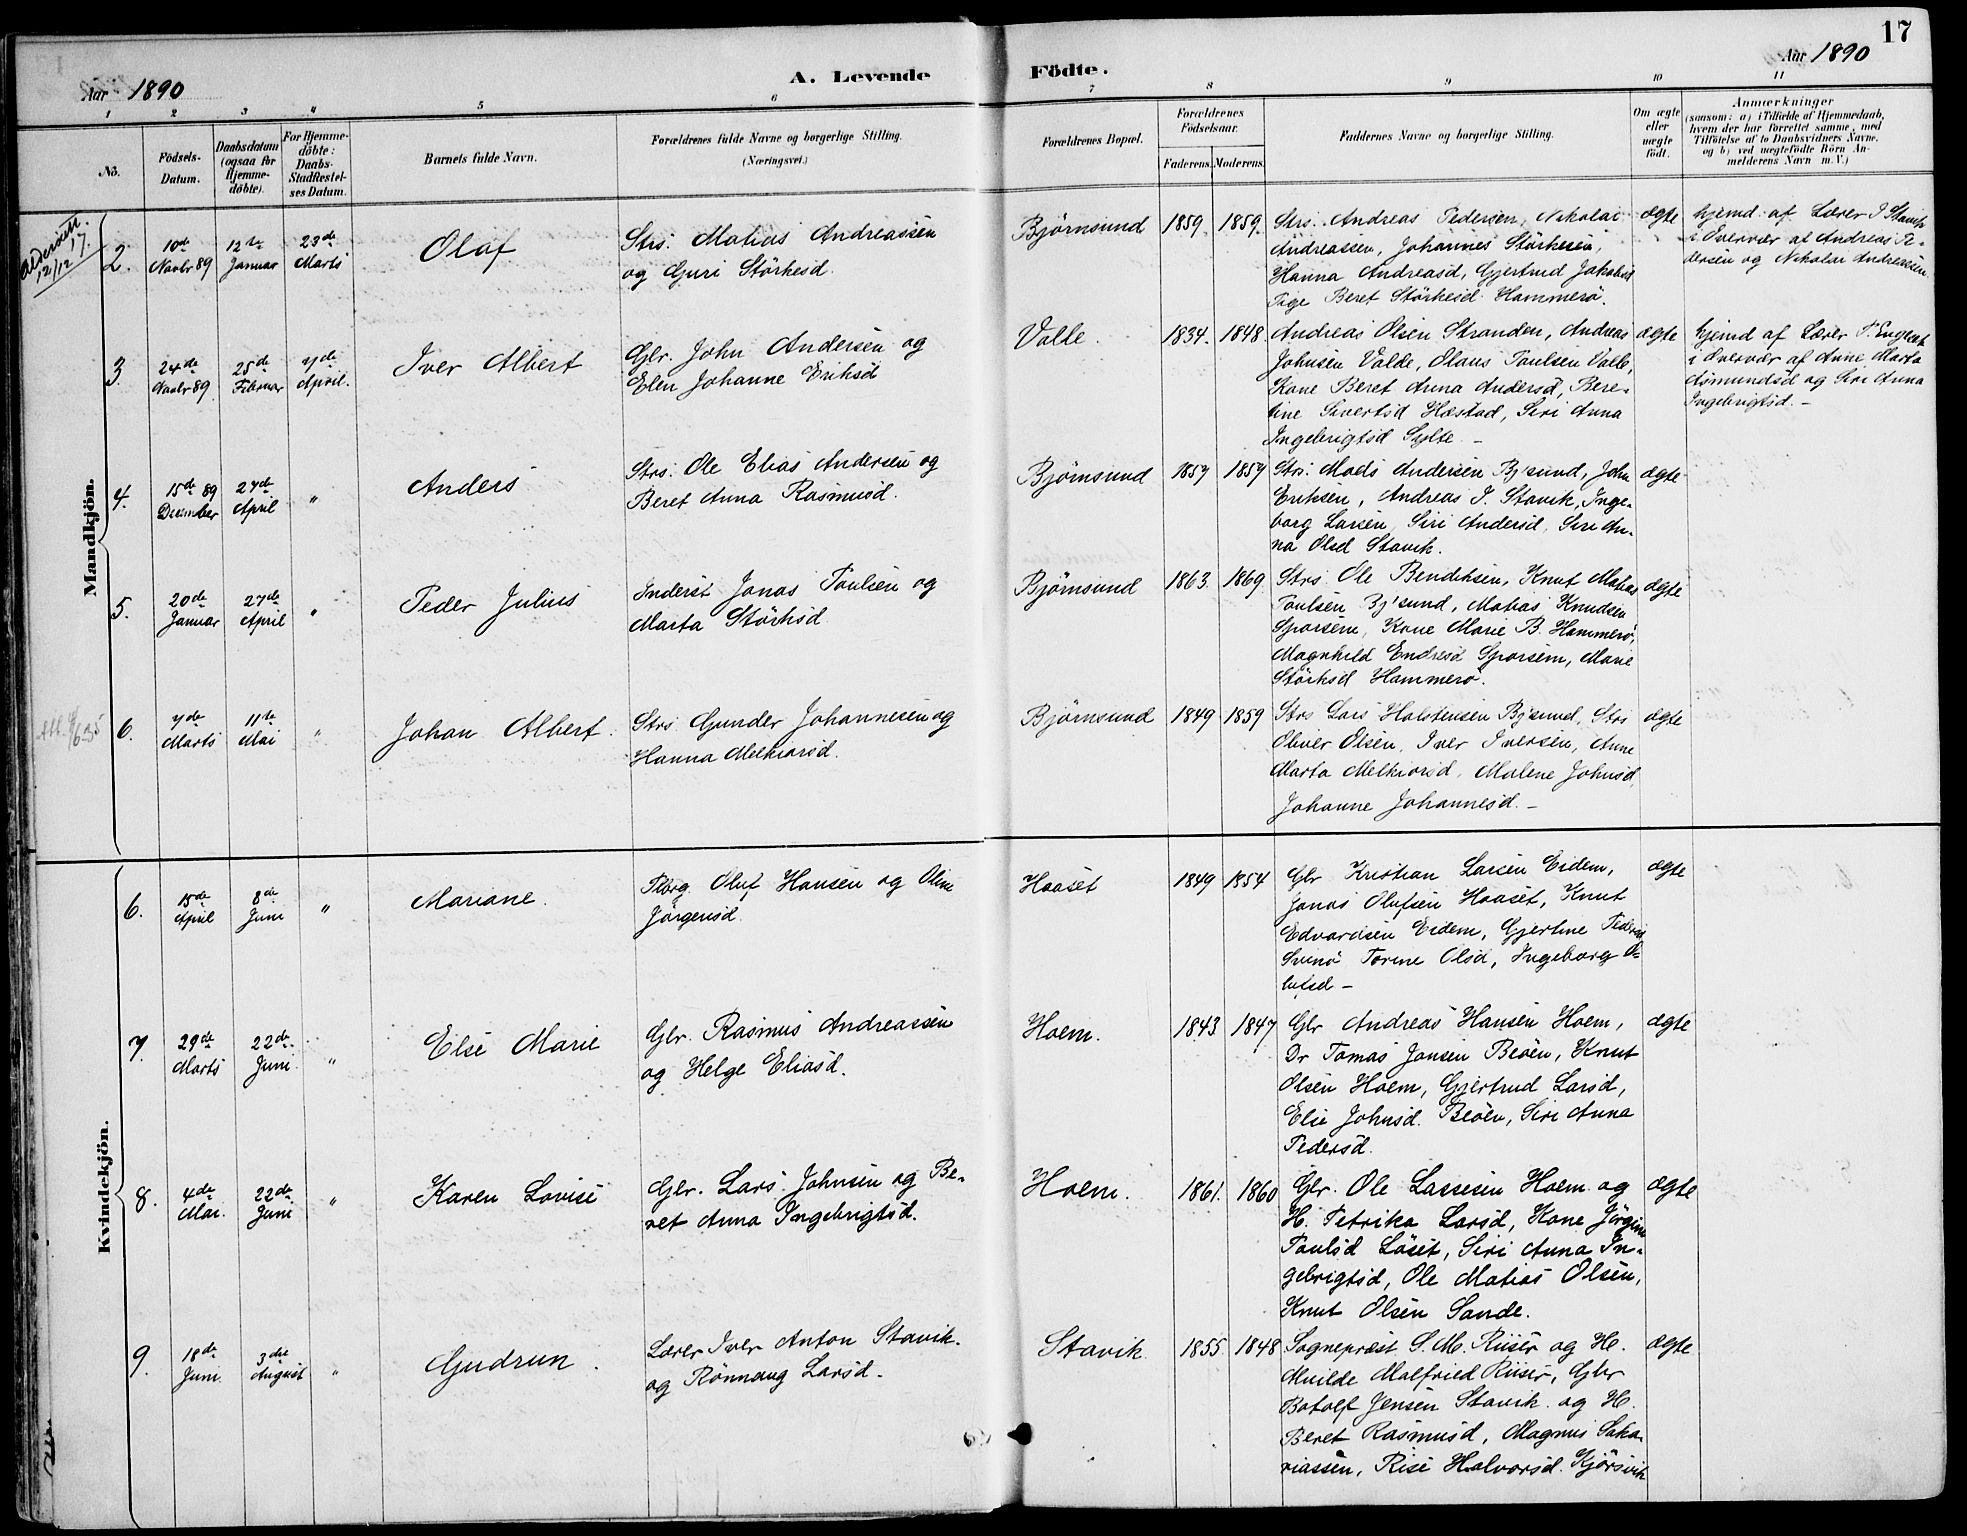 17
Aar 1890
A. Levende
Födte.
Aar 1890
1 2 3 4 5 6 7 8 9 10 11
No.
Födsels-
Datum.
Daabsdatum
(ogsaa for
Hjemme-
döbte).
For Hjemme-
döbte:
Daabs-
Stadfæstel-
ses Datum.
Barnets fulde Navn.
Forældrenes fulde Navne og borgerlige Stilling.
(Næringsvei.)
Forældrenes Bopæl.
Forældrenes
Födselsaar.
Faderens. Moderens.
Faddernes Navne og borgerlige Stilling.
Om ægte
eller
uægte
födt.
Anmærkninger
(saasom: a) i Tilfælde af Hjemmedaab,
hvem der har forrettet samme, med
Tilföielse af to Daabsvidners Navne.
og b) ved uægtefödte Börn An-
melderens Navn m. V.)
Mandkjön.
Aldersatt.
12/12 17.
2.
10de
Novbr 89
12te
Januar
23de
Marts
Olaf
Strs. Matias Andreassen
og Guri Störkesd.
Björnsund
1859. 1859.
Strs. Andreas Pedersen, Nikolai
Andreassen, Johannes Störkesen,
Hanna Andreasd, Gjertrud Jakobsd
Pige Beret Störkesd Hammerö.
ægte
hjemd. af Lærer I Stavik
i Overvær af Andreas Pe-
dersen og Nikolai Andreassen.
3.
24de
Novbr 89
25de
Februar
7de
April.
Iver Albert
Gbr. John Andersen og
Elen Johanne Eriksd
Valle.
1834. 1848
Andreas Olsen Stranden, Andreas
Johnsen Valde, Olaus Paulsen Valle,
Kone Beret Anna Andersd, Bere-
tine Sivertsd Hæstad, Siri Anna
Ingebrigtsd Sylte. —
ægte
hjemd af Lærer P. Engeset
i Overvær af Anne Marta
Asmundsd og Siri Anna
Ingebrigtsd. —
4.
15de 89
December
27de
April
"
Anders
Strs. Ole Elias Andersen og
Beret Anna Rasmusd.
Björnsund
1857 1857
Strs. Mads Andersen Bj'sund, John
Eriksen, Andreas I. Stavik, Inge-
borg Larsen, Siri Andersd, Siri An-
na Olsd Stavik.
ægte
5.
20de
Januar
27de
April
"
Peder Julius
Inderst Jonas Paulsen og
Marta Störksd
Björnsund
1863. 1869.
Strs. Ole Bendiksen, Knut Matias
Paulsen Bj'sund, Matias Knudsen
Sporsem, Kone Marie B. Hammerö,
Magnhild Endresd Sporsem, Marie
Störksd Hammerö.
ægte
6.
7de
Marts
11te
Mai
"
Johan Albert.
Strs Gunder Johannesen og
Hanna Melkiorsd.
Björnsund
1849 1859
Strs Lars Halstensen Bj'sund, Strs
Oliver Olsen, Iver Iversen, Anne
Marta Melkiorsd, Malene Johnsd,
Johanne Johannesd. —
ægte
Kvindekjön.
6.
15de
April
8de
Juni
"
Mariane.
Pberg. Oluf Hansen og Oline
Jörgensd.
Haaset
1849 1854
Gbr Kristian Larsen Eidem,
Jonas Olufsen Haaset, Knut
Edvardsen Eidem, Gjertine Pedersd
Svinö Torine Olsd, Ingeborg O-
lufsd —
ægte
7.
29de
Marts
22de
Juni.
"
Else Marie
Gbr. Rasmus Andreassen
og Helge Eliasd.
Hoem.
1843 1847
Gbr Andreas Hansen Hoem,
Dr Tomas Jonsen Beöen, Knut
Olsen Hoem, Gjertrud Larsd,
Else Johnsd. Beöen, Siri Anna
Pedersd.
ægte
8.
4de
Mai.
22de
Juni
"
Karen Lovise
Gbr. Lars Johnsen og Be-
ret Anna Ingebrigtsd.
Hoem.
1861. 1860
Gbr. Ole Lassesen Hoem og
H. Petrika Larsd, Kone Jörgine
Paulsd Löset, Siri Anna In-
gebrigtsd, Ole Matias Olsen,
Knut Olsen Sande.
ægte
9.
18de
Juni.
3die
August
"
Gudrun.
Lærer Iver Anton Stavik
og Rönnaug Larsd.
Stavik
1855. 1848
Sognepræst S. M. Riiser og H.
Mulde Malfried Riiser, Gbr
Botolf Jensen Stavik og H.
Beret Rasmusd, Magnus Saka-
riassen, Rise Halvorsd. Kjörsvik
ægte